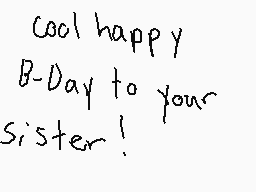 cool happy
B-Day to your
sister!